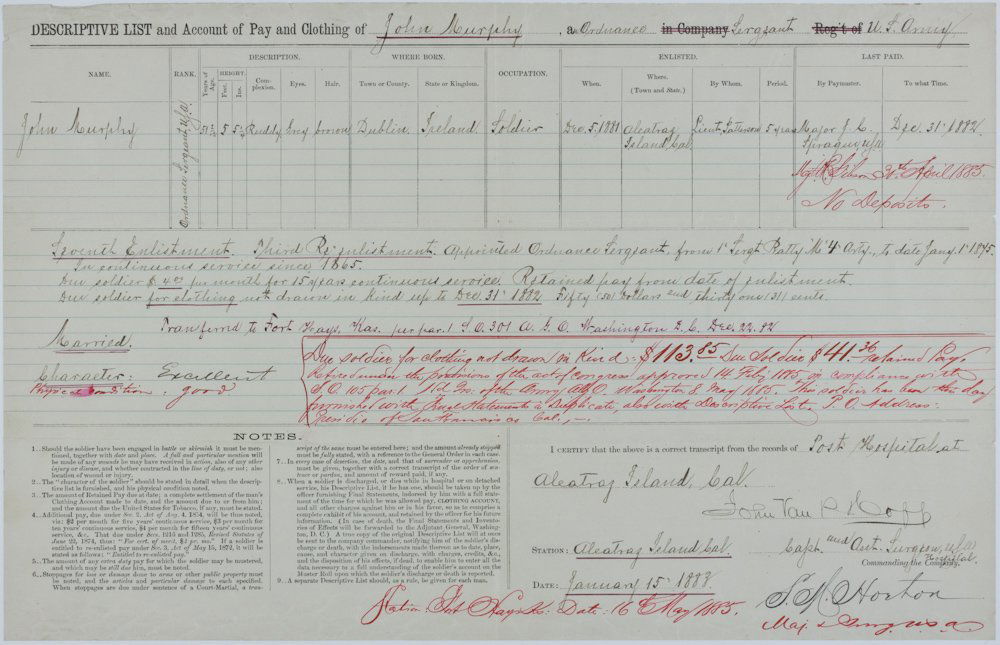 DESCRIPTIVE LIST and Account of Pay and Clothing of John Murphy, an Ordnance in Company Sergeant Reg't of U.S. Army
DESCRIPTION. WHERE BORN. ENLISTED. LAST PAID.
NAME. RANK. Years of Age. HEIGHT. Feet. Ins. Complexion. Eyes. Hair. Town or County. State or Kingdom. OCCUPATION. When. Where. (Town and State.) By Whom. Period. By Paymaster. To what Time.
John Murphy Ordnance Sergeant U.S.A. 5 Ruddy Grey brown Dublin Ireland Soldier Dec. 5. 1881 Alcatraz Island, Cal. Lieut. Patterson 5 years Major J. C. Sprague, U.S.A. Dec. 31st 1882
30th April 1885.
No Deposits.
Seventh Enlistment. Third Re-enlistment. Appointed Ordnance Sergeant, from 1st Sergt Batty "M" 4" Arty., to date Jany. 1st 1875.
In continuous service since 1865.
Due soldier $4.00 per month for 15 years continuous service. Retained pay from date of enlistment.
Due soldier for clothing not drawn in kind up to Dec. 31st 1882 Fifty (50) Dollars and thirty one (31) cents.
Transferred to Fort Hays, Kas. per par. 1 S.O. 301 A.G.O. Washington D.C. Dec. 22. 82
Married.
Character: Excellent
Physical Condition: good
Due soldier for clothing not drawn in kind:- $113.85 Due Soldier $41.36 retained Pay.
Retired under the provisions of the act of Congress approved 14 Feby 1885, in compliance with
S.O. 105 par. 1 Hd. Qrs. of the Army A.G.O. Washington 8. May 1885. This soldier has been this day
furnished with Final Statements in Duplicate, also with Descriptive List. P.O. Address:
Presidio of San Francisco Cal.,
NOTES.
1..Should the soldier have been engaged in battle or skirmish it must be mentioned, together with date and place. A full and particular mention will
be made of any wounds he may have received in action, also of any other
injury or disease, and whether contracted in the line of duty, or not; also
location of wound or injury.
2..The "character of the soldier" should be stated when the descriptive list is furnished, and his physical condition noted.
3..The amount of Retained Pay due at date; a complete settlement of the man's
Clothing Account made to date, and the amount due to or from him;
and the amount due the United States for Tobacco, if any, must be stated.
4..Additional pay, due under Sec. 2, Act of Aug. 4, 1854, will be thus noted,
viz: $2 per month for five years' continuous service, $3 per month for
ten years' continuous service, $4 per month for fifteen years' continuous
service, &c. That due under Secs. 1216 and 1285, Revised Statutes of
June 22, 1874, thus: "For cert. of merit, $2 per mo." If a soldier is
entitled to re-enlisted pay under Sec. 3, Act of May 15, 1872, it will be
stated as follows: "Entitled to re-enlisted pay."
5..The amount of any extra duty pay for which the soldier may be mustered,
and which may be still due him, must be noted.
6..Stoppages for loss or damage done to arms or other public property must
be noted, and the articles and particular damage to each specified.
When stoppages are due under sentence of a Court-Martial, a transcript of the same must be entered here; and the amount already stopped
must be fully stated, with a reference to the General Order in each case.
7..In every case of desertion, the date, and that of surrender or apprehension,
must be given, together with a correct transcript of the order of sentence or pardon, and amount of reward paid, if any.
8..When a soldier is discharged, or dies while in hospital or on detached
service, his Descriptive List, if he has one, should be taken up by the
officer furnishing Final Statements, indorsed by him with a full statement of the time for which he was allowed pay, CLOTHING ACCOUNT,
and all other charges against him or in his favor, so as to comprise a
complete exhibit of his account, and retained by the officer for his future
information. (In case of death, the Final Statements and Inventories of Effects will be forwarded to the Adjutant General, Washington, D. C.) A true copy of the original Descriptive List will at once
be sent to the company commander, notifying him of the soldier's discharge or death, with the indorsements made thereon as to date, place,
cause, and character given on discharge, with charges, credits, &c.,
and the disposition of his effects, if dead, to enable him to enter all the
data necessary to a full understanding of the soldier's account on the
Muster Roll upon which the soldier's discharge or death is reported.
9..A separate Descriptive List should, as a rule, be given for each man.
I CERTIFY that the above is a correct transcript from the records of Post Hospital at
Alcatraz Island, Cal.
John Van R. Hoff
STATION: Alcatraz Island Cal Capt. and Asst. Surgeon, U.S.A.
Commanding the Company. Hospital.
DATE: January 15" 1883.
S. M. Horton
Station: Fort Hays Ks: Date: 16th May 1885. Maj. & Surg. U.S.A